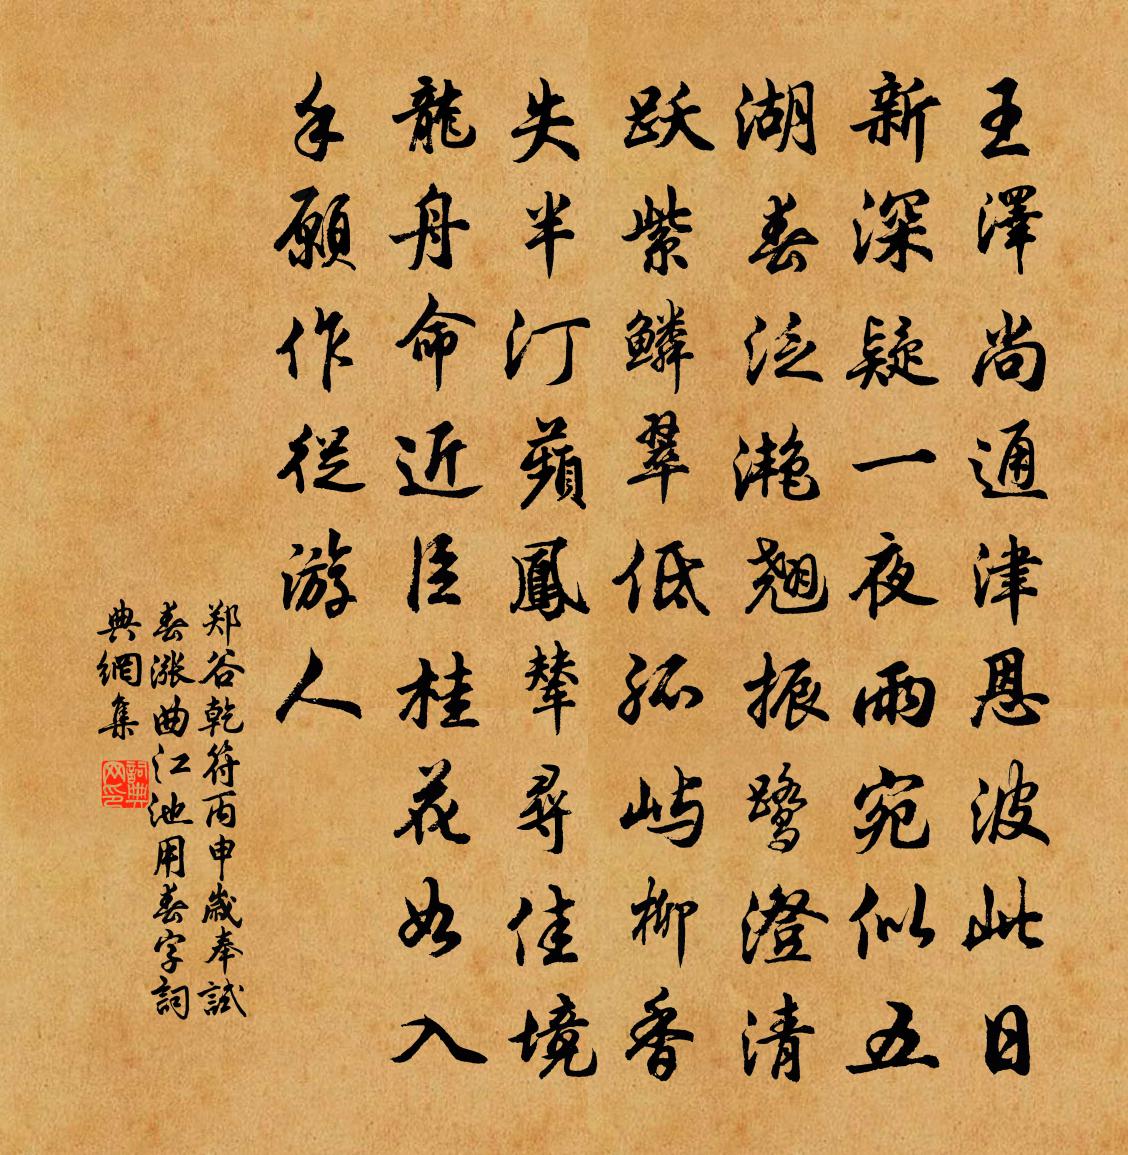 王澤尚通津恩波此日
新深疑一夜雨宛似五
湖春泛滟翹振鷺澄清
跃紫鱗翠低孤屿柳香
失半汀蘋鳳輦尋佳境
龍舟命近臣桂花如入
手願作從游人
郑谷乾符丙申歲奉試
春漲曲江池用春字詞
典網集
詞典网印